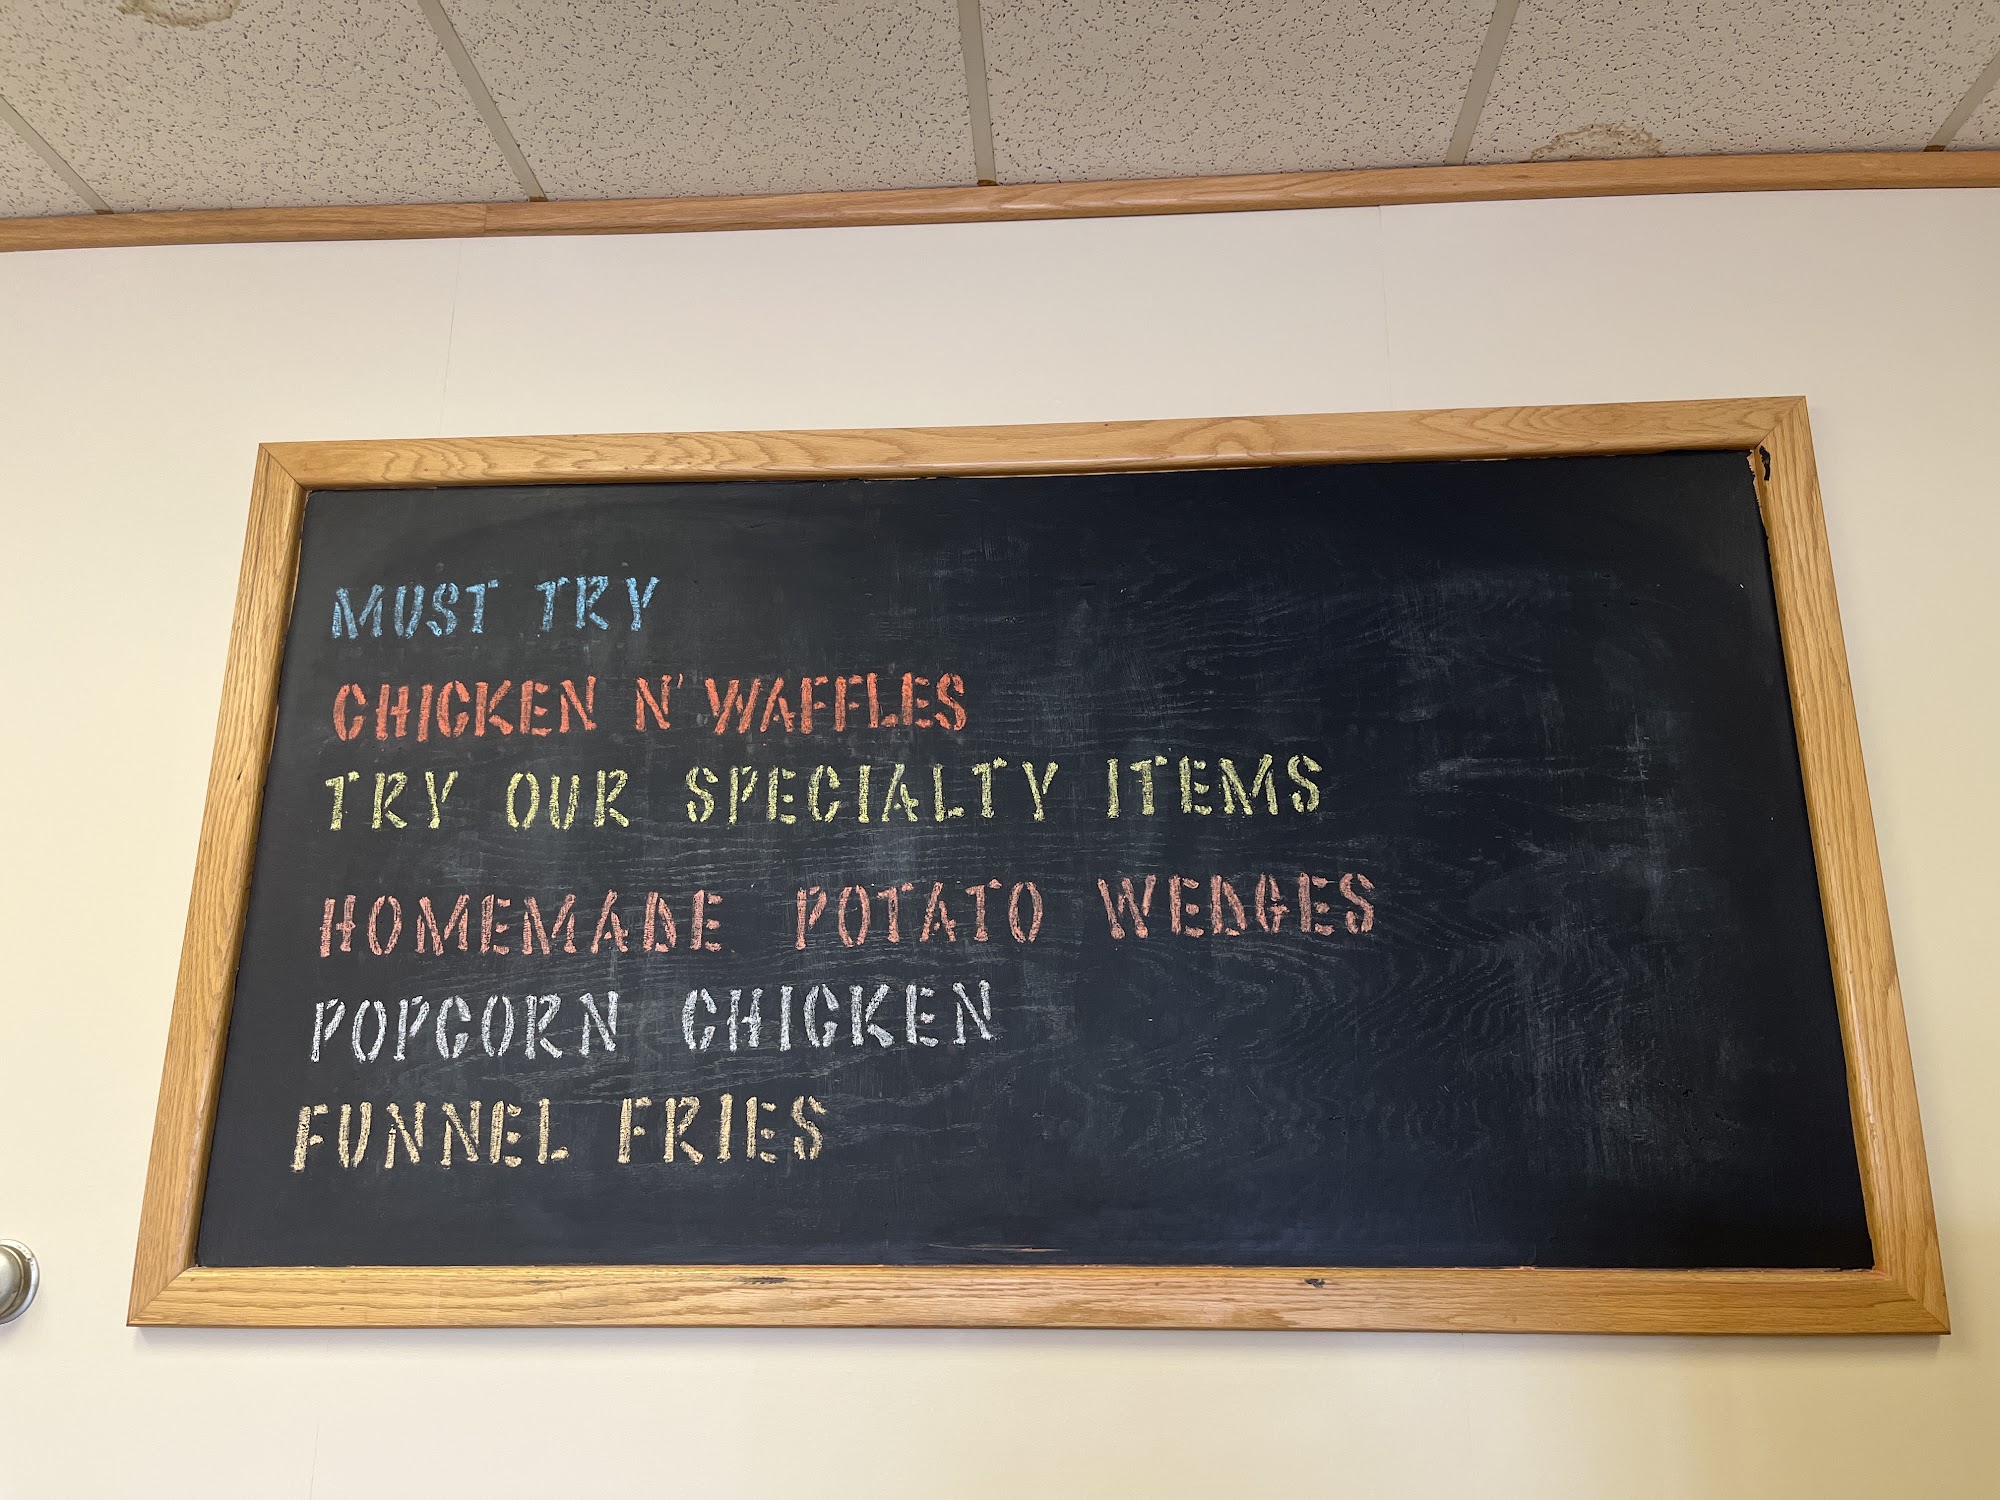 MUST TRY
CHICKEN N' WAFFLES
TRY OUR SPECIALTY ITEMS
HOMEMADE POTATO WEDGES
POPCORN CHICKEN
FUNNEL FRIES